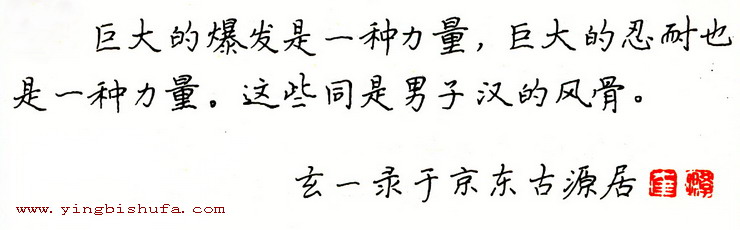 巨大的爆发是一种力量，巨大的忍耐也
是一种力量。这些同是男子汉的风骨。
玄一录于京东古源居
www.yingbishufa.com